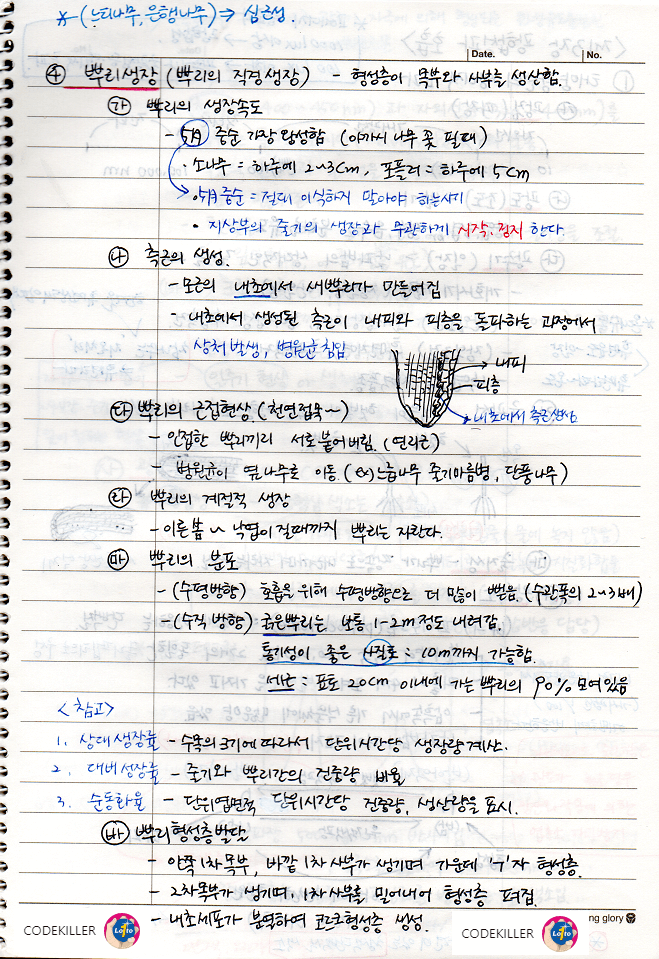 * (느티나무, 은행나무) → 심근성.
Date.
No.
④ 뿌리생장 (뿌리의 직경생장) - 형성층이 목부와 사부를 생산함.
㉮ 뿌리의 생장속도
- 5月 중순 가장 왕성함 (아까시나무 꽃 필때)
· 소나무 = 하루에 2~3cm, 포플러 = 하루에 5cm
· 5月 중순 = 절대 이식하지 말아야 하는시기
· 지상부의 줄기의 생장과 무관하게 시작.정지 한다.
㉯ 측근의 생성.
- 모근의 내초에서 새뿌리가 만들어짐
- 내초에서 생성된 측근이 내피와 피층을 돌파하는 과정에서
상처발생, 병원균 침입
내피
피층
내초에서 측근생성
㉰ 뿌리의 근접현상. (천연접목~)
- 인접한 뿌리끼리 서로 붙어버림. (연리근)
- 병원균이 옆나무로 이동. (ex) 느릅나무 줄기마름병, 단풍나무)
㉱ 뿌리의 계절적 생장
- 이른봄 ~ 낙엽이 질때까지 뿌리는 자란다.
㉲ 뿌리의 분포
- (수평방향) 호흡을 위해 수평방향으로 더 많이 뻗음. (수관폭의 2~3배)
- (수직 방향) 굵은뿌리는 보통 1-2m정도 내려감.
통기성이 좋은 사질토 = 10m까지 가능함.
세근 = 표토 20cm 이내에 가는 뿌리의 90% 모여있음
<참고>
1. 상대생장률 - 수목의 크기에 따라서 단위시간당 생장량계산.
2. 대비성장률 - 줄기와 뿌리간의 건중량 비율
3. 순동화율 - 단위엽면적 단위시간당 건중량, 생산량을 표시.
㉳ 뿌리형성층발달
- 안쪽 1차목부, 바깥 1차 사부가 생기며 가운데 'ㄱ'자 형성층.
- 2차목부가 생기며, 1차 사부를 밀어내어 형성층 펴짐.
- 내초세포가 분열하여 코르크형성층 생성.
ng glory
CODEKILLER
Lotto
CODEKILLER
Lotto